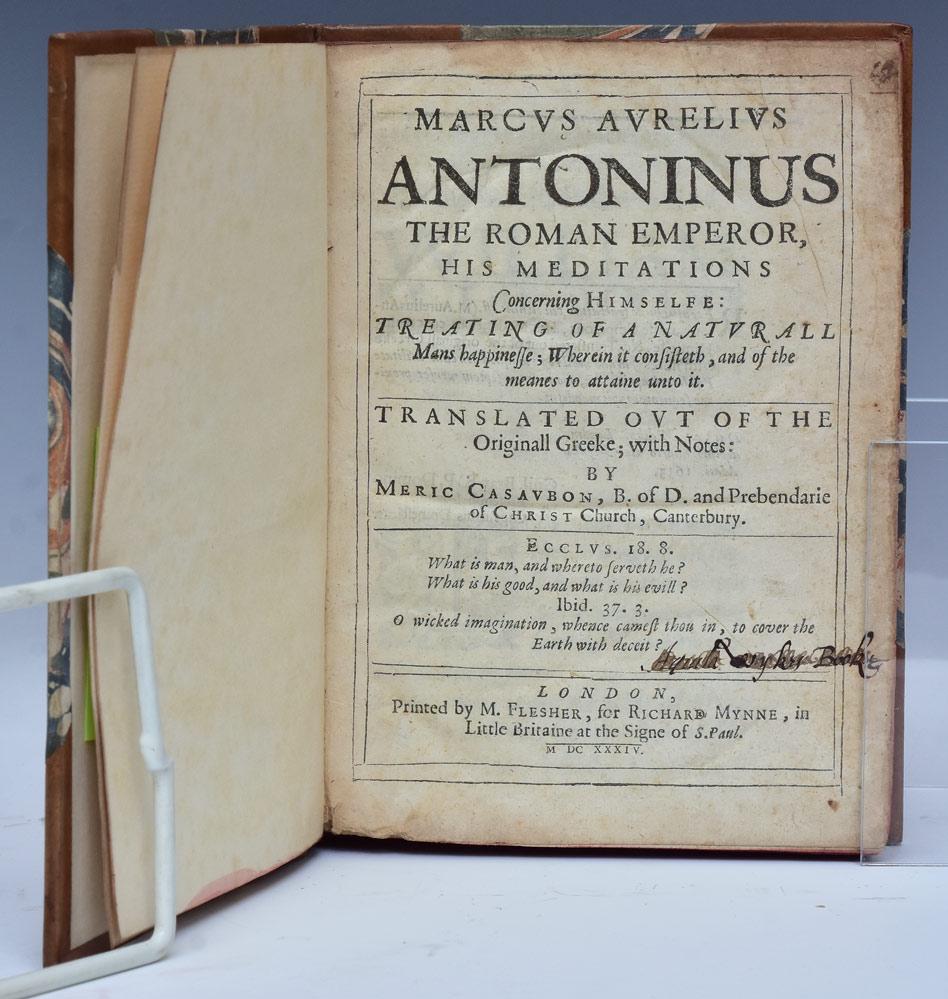 MARCVS AVRELIVS
ANTONINUS
THE ROMAN EMPEROR,
HIS MEDITATIONS
Concerning HIMSELFE:
TREATING OF A NATVRALL
Mans happineſſe; Wherein it conſiſteth, and of the
meanes to attaine unto it.
TRANSLATED OVT OF THE
Originall Greeke; with Notes:
BY
MERIC CASAVBON, B. of D. and Prebendarie
of CHRIST Church, Canterbury.
ECCLVS. 18. 8.
What is man, and whereto ſerveth he?
What is his good, and what is his evill?
Ibid. 37. 3.
O wicked imagination, whence cameſt thou in, to cover the
Earth with deceit?
Booke
LONDON,
Printed by M. FLESHER, for RICHARD MYNNE, in
Little Britaine at the Signe of S. Paul.
M DC XXXIV.